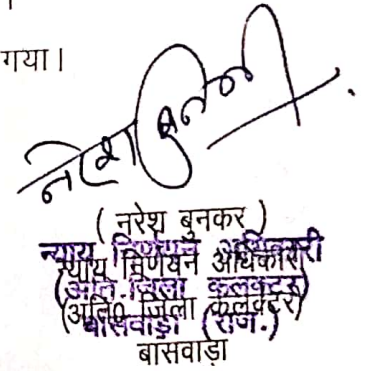 गया।
नरेश बुनकर
( नरेश बुनकर )
न्याय निर्णयन अधिकारी
न्याय निर्णयन अधिकारी
(अति. जिला कलक्टर)
(अति० जिला कलक्टर)
बांसवाड़ा (राज.)
बांसवाड़ा